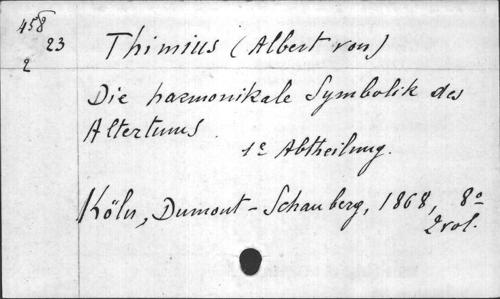 458
23
2
Thimius (Albert von)
Die harmonikale Symbolik des
Altertums.
1e Abtheilung.
Köln, Dumont-Schauberg, 1868, 8o
2 vol.